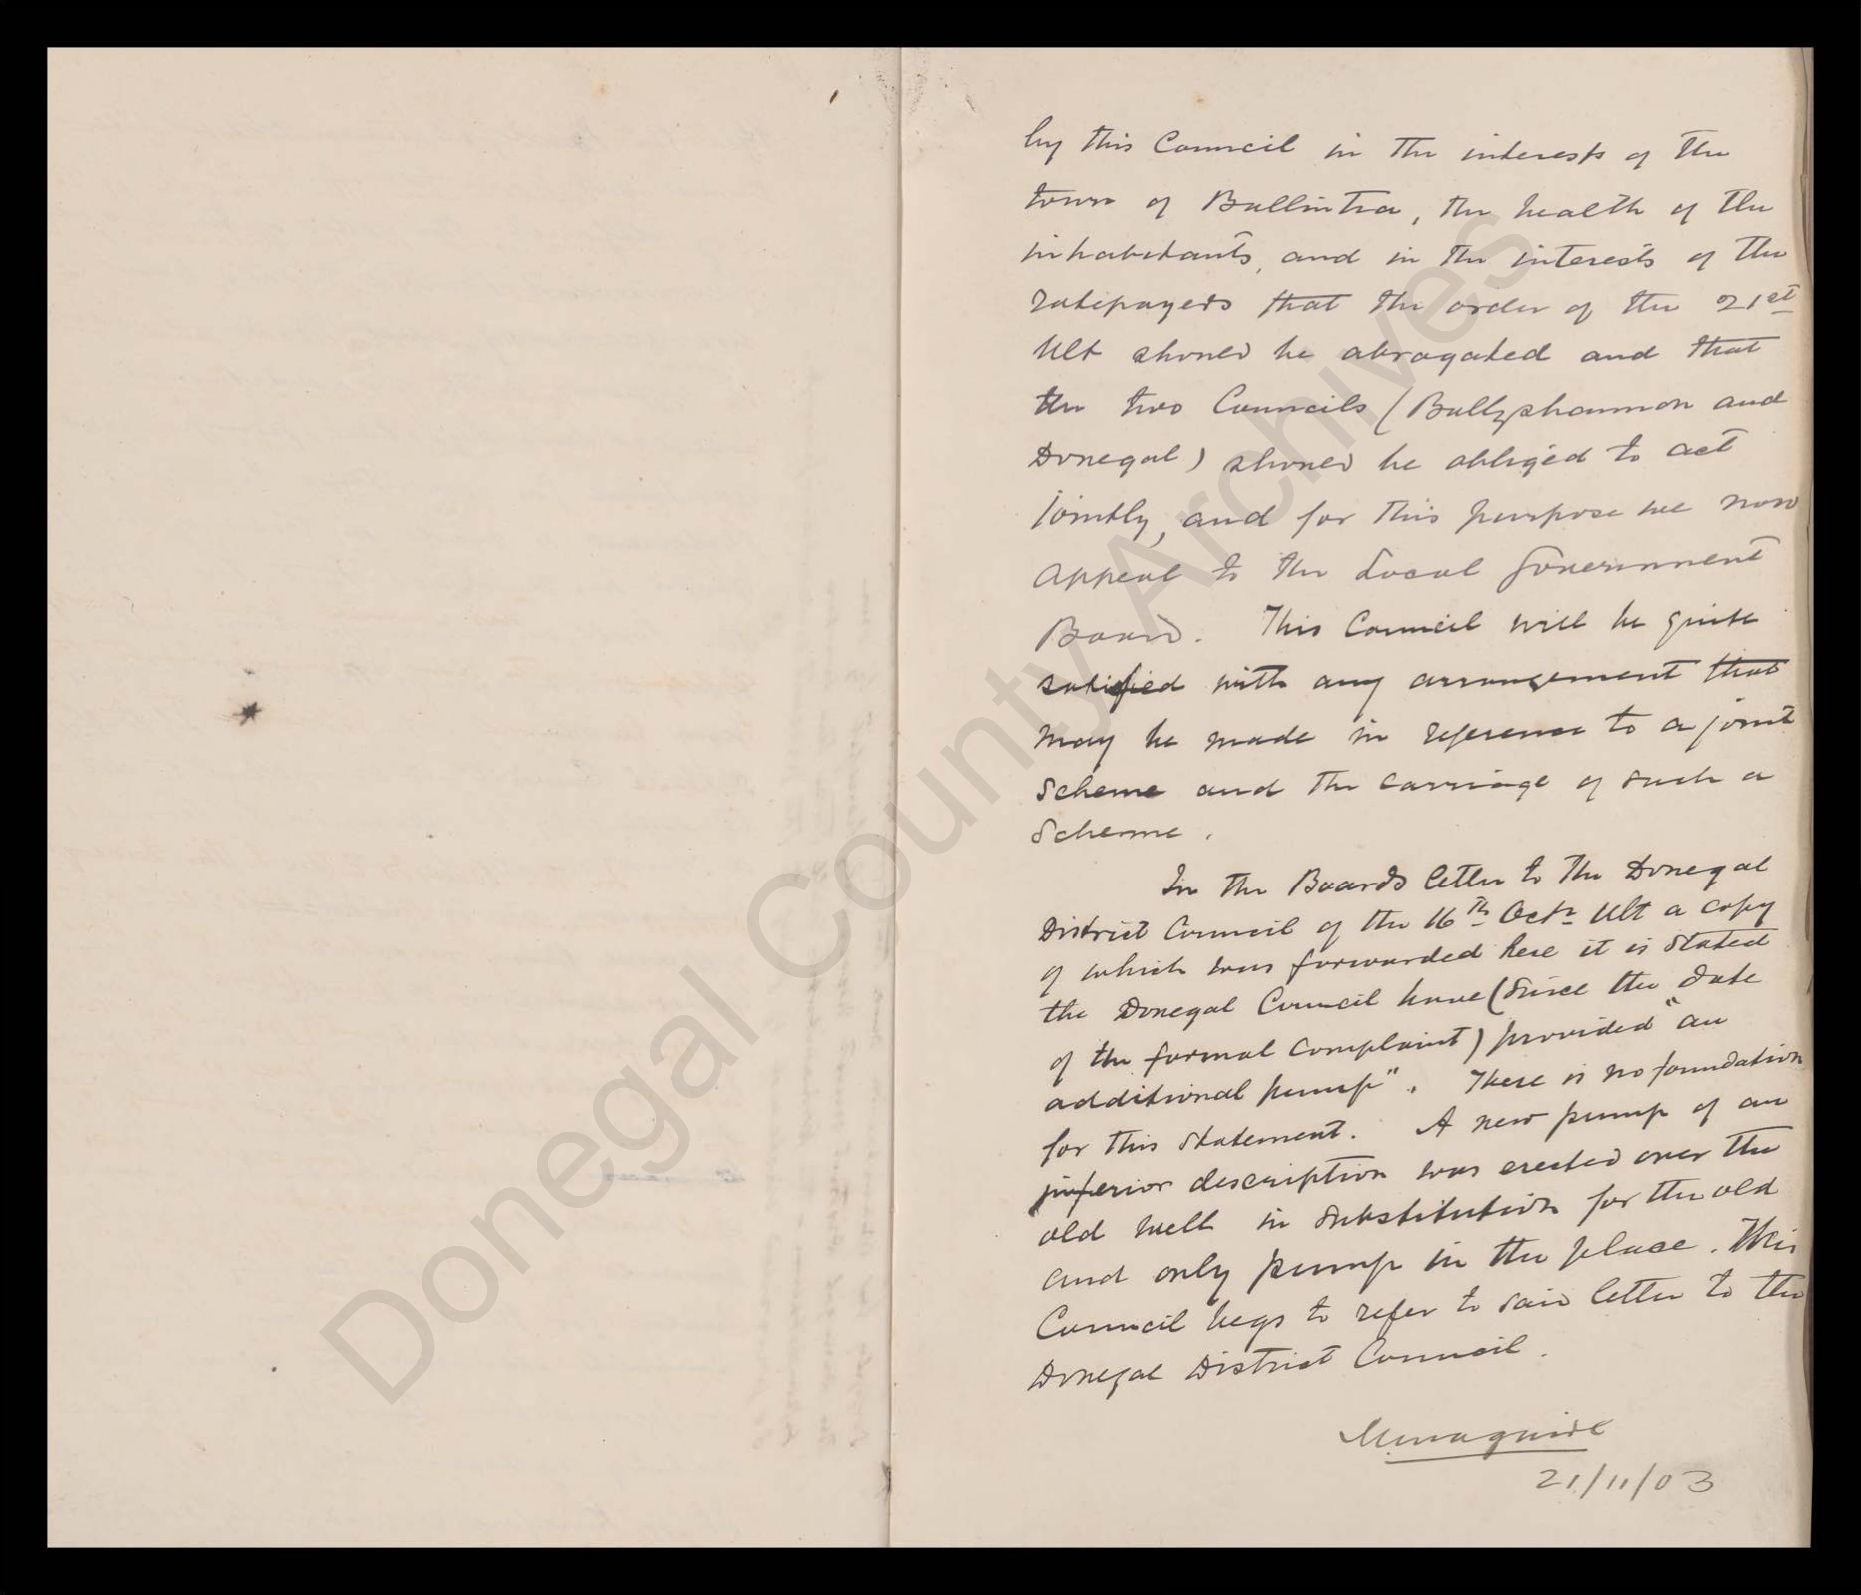 by this Council in the interests of the
town of Ballintra, the health of the
inhabitants, and in the interests of the
ratepayers that the order of the 21st
Ult should be abrogated and that
the two Councils (Ballyshannon and
Donegal) should be obliged to act
jointly, and for this purpose we now
appeal to the Local Government
Board. This Council will be quite
satisfied with any arrangement that
may be made in reference to a joint
scheme and the carriage of such a
Scheme.
In the Boards letter to the Donegal
District Council of the 16th Octr Ult a copy
of which was forwarded here it is stated
the Donegal Council have (since the date
of the formal complaint) provided "an
additional pump". There is no foundation
for this statement. A new pump of an
inferior description was erected over the
old well in substitution for the old
and only pump in the place. This
Council begs to refer to said letter to the
Donegal District Council.
21/11/03
Donegal County Archives